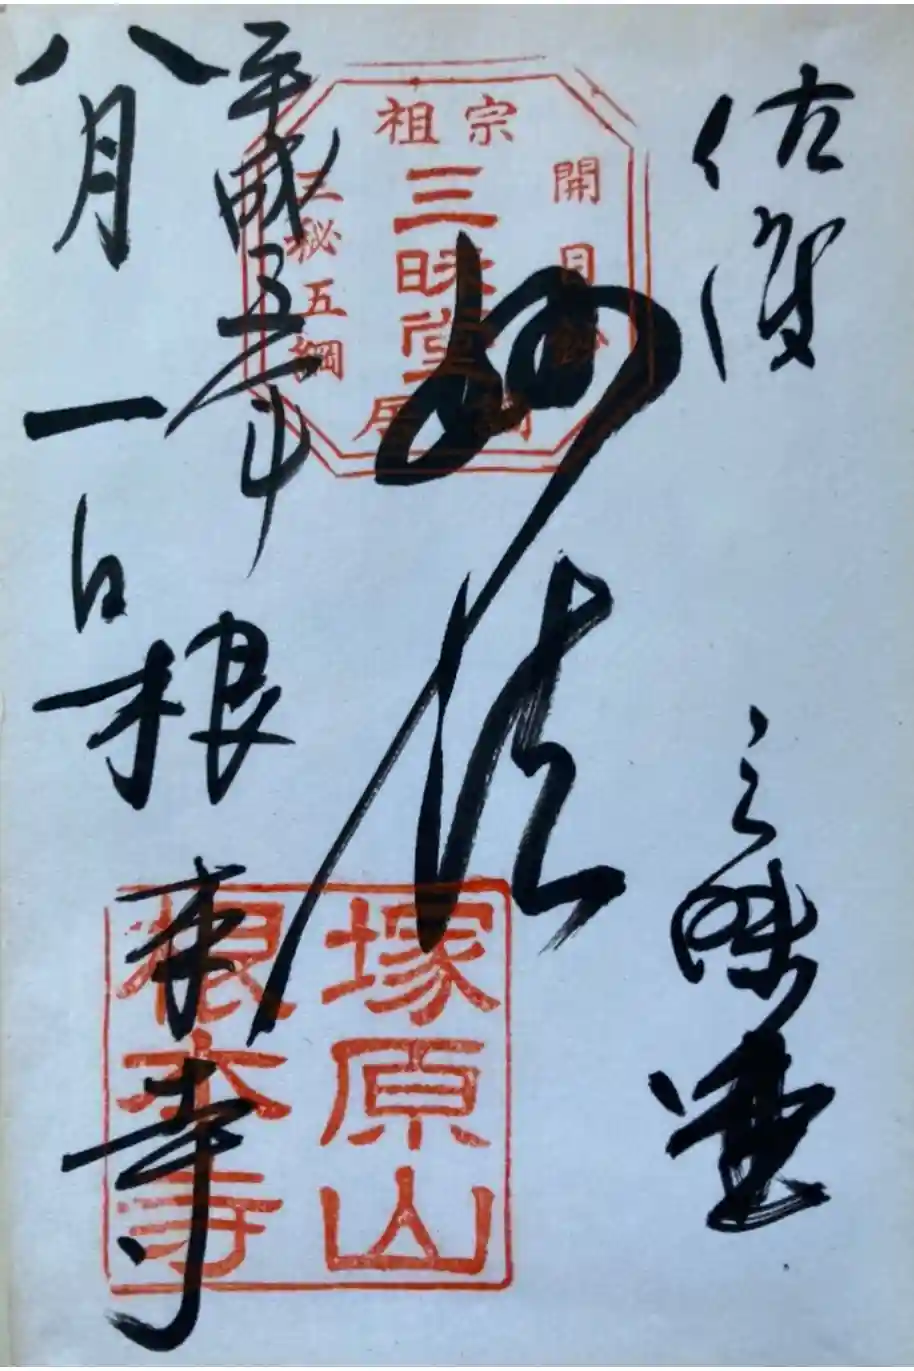 佐渡
三昧堂
妙法
平成五年
八月一日
根本寺
宗祖
開目鈔
三昧堂
三秘五綱
塚原山
根本寺